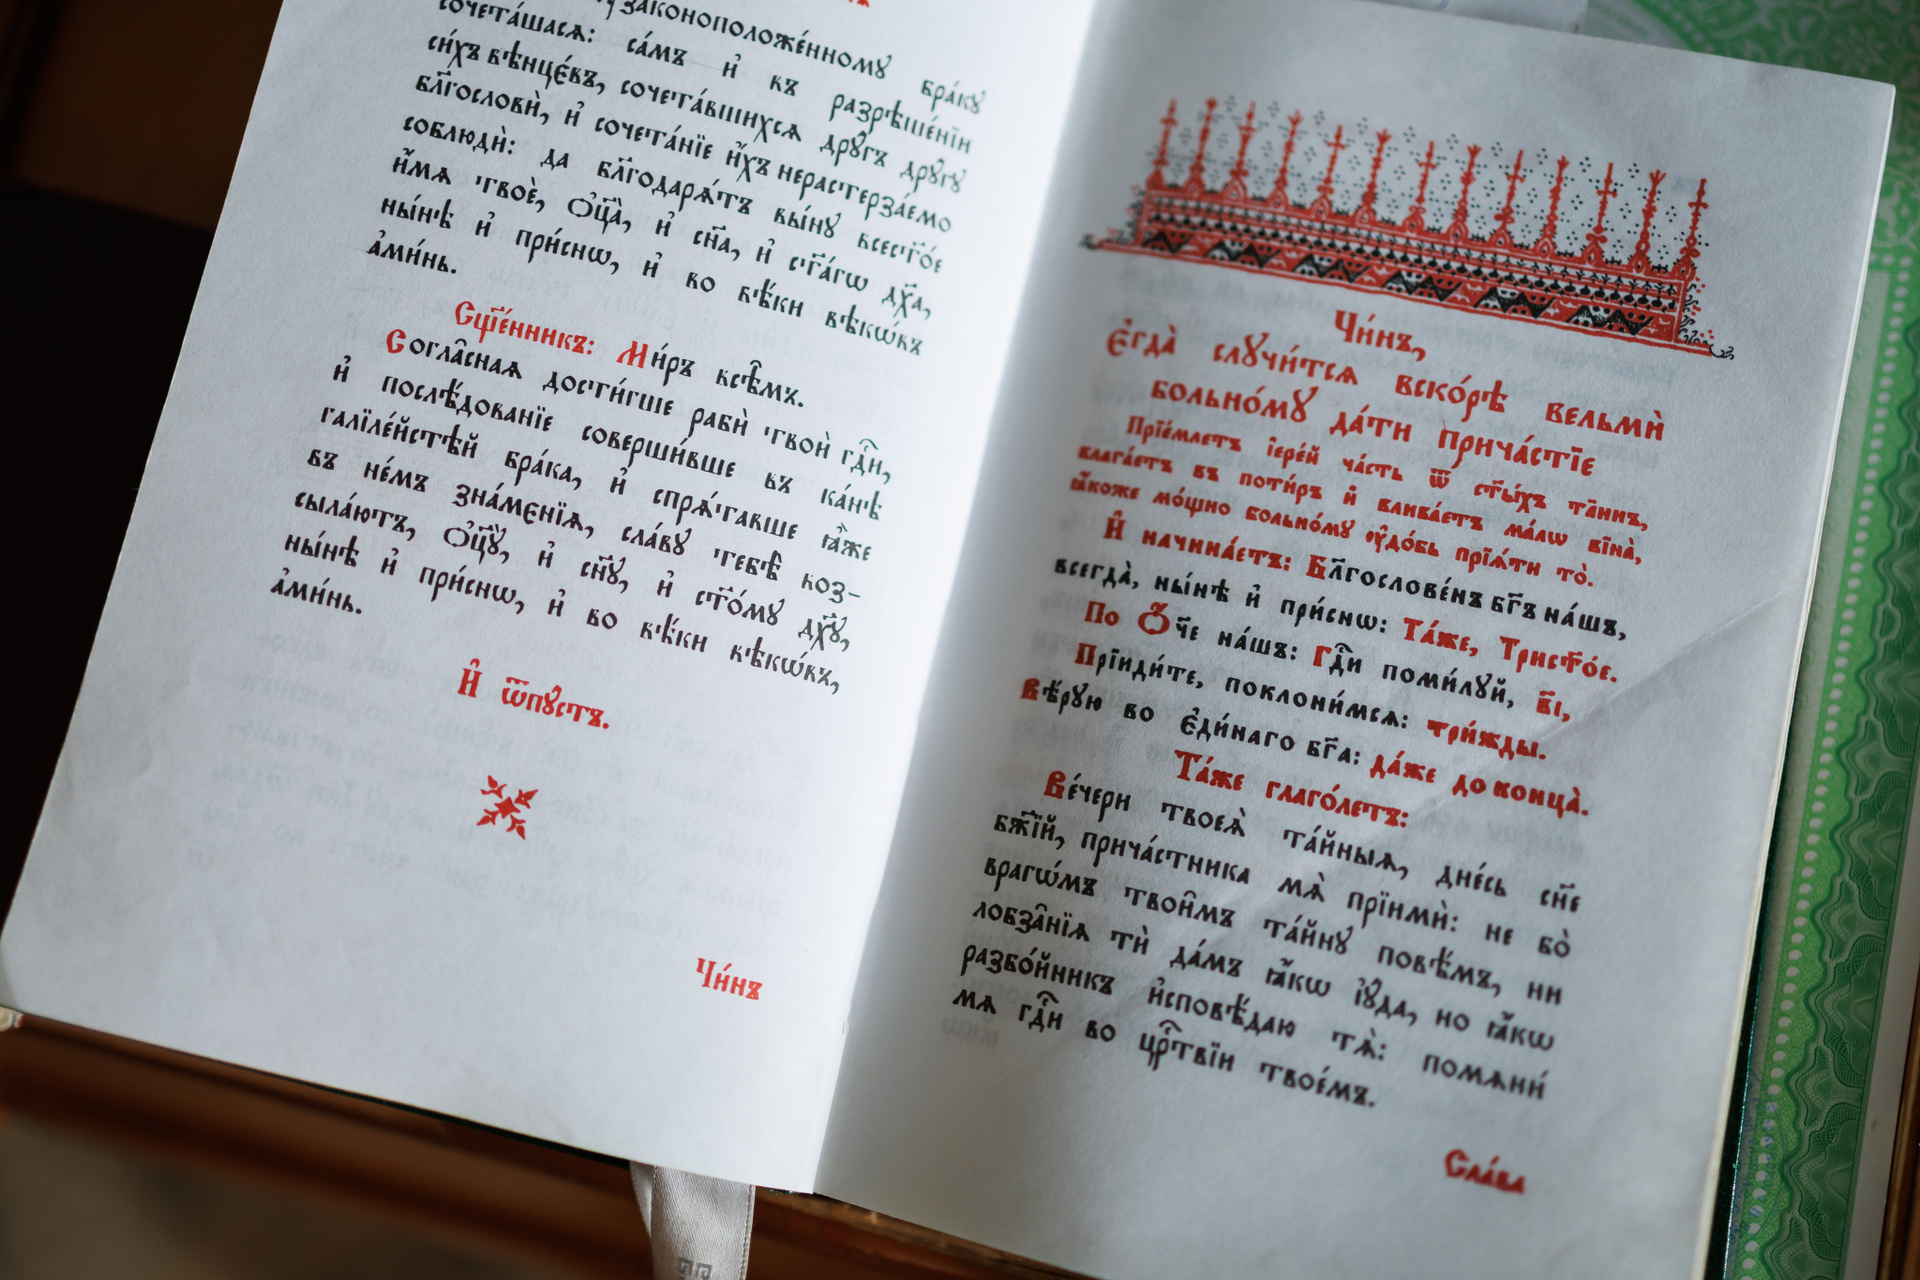 законоположе́нномꙋ бра́кꙋ
сочета́шасѧ: са́мъ и҆ къ разрѣше́нїи
си́хъ вѣнцє́въ, сочета́вшихсѧ дрꙋ́гъ дрꙋ́гꙋ
бл҃гословѝ, и҆ сочета́нїе и҆́хъ нерастерза́емо
соблюдѝ: да бл҃годарѧ́тъ вы́нꙋ всест҃о́е
и҆́мѧ твоѐ, Ѻ҆ц҃а̀, и҆ сн҃а, и҆ ст҃а́гѡ дх҃а,
ны́нѣ и҆ при́снѡ, и҆ во вѣ́ки вѣкѡ́въ
а҆ми́нь.
Сщ҃е́нникъ: Ми́ръ всѣ̑мъ.
Согла̑снаѧ дости́гше рабѝ твоѝ гдⷭ҇и,
и҆ послѣ́дованїе соверши́вше въ ка́нѣ
галїле́йстѣй бра́ка, и҆ спрѧ́тавше ꙗ҆̀же
въ не́мъ зна́мєнїѧ, сла́вꙋ тебѣ̀ воз-
сыла́ютъ, Ѻ҆ц҃ꙋ̀, и҆ сн҃ꙋ, и҆ ст҃о́мꙋ дх҃ꙋ,
ны́нѣ и҆ при́снѡ, и҆ во вѣ́ки вѣкѡ́въ,
а҆ми́нь.
И҆ ѿпꙋ́стъ.
Чи́нъ
Чи́нъ,
Є҆гда̀ слꙋчи́тсѧ вско́рѣ вельмѝ
больно́мꙋ да́ти прича́стїе
Прїе́млетъ і҆ере́й ча́сть ѿ ст҃ы́хъ та̑инъ,
влага́етъ въ поти́ръ и҆ влива́етъ ма́лѡ вїна̀,
ꙗ҆́коже мо́щно больно́мꙋ ᲂу҆до́бь прїѧ́ти то̀.
И҆ начина́етъ: Бл҃гослове́нъ бг҃ъ на́шъ,
всегда̀, ны́нѣ и҆ при́снѡ: Та́же, Трист҃о́е.
По Ѻ҆́ч҃е на́шъ: Гдⷭ҇и поми́лꙋй, в҃і,
Прїиди́те, поклони́мсѧ: три́жды.
Вѣ́рꙋю во є҆ди́наго бг҃а: да́же до конца̀.
Та́же глаго́летъ:
Ве́чери твоеѧ̀ та́йныѧ, дне́сь сн҃е
бж҃їй, прича́стника мѧ̀ прїимѝ: не бо̀
врагѡ́мъ твои̑мъ та́йнꙋ повѣ́мъ, ни
лобза̑нїѧ тѝ да́мъ ꙗ҆́кѡ і҆ꙋ́да, но ꙗ҆́кѡ
разбо́йникъ и҆сповѣ́даю тѧ̀: помѧни́
мѧ гдⷭ҇и во црⷭ҇твїи твое́мъ.
Сла́ва